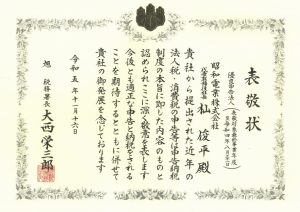 表敬状
優良申告法人
昭和電業株式会社
代表取締役社長
俊平 殿
貴社から提出された近年の
法人税・消費税の申告等は申告納税
制度の本旨に即した内容のものと
認められここに深く敬意を表します
今後とも適正な申告と納税をされる
ことを期待するとともに併せて
貴社の御発展を祈念しております
令和五年十一月十六日
旭 税務署長 大西栄三郎